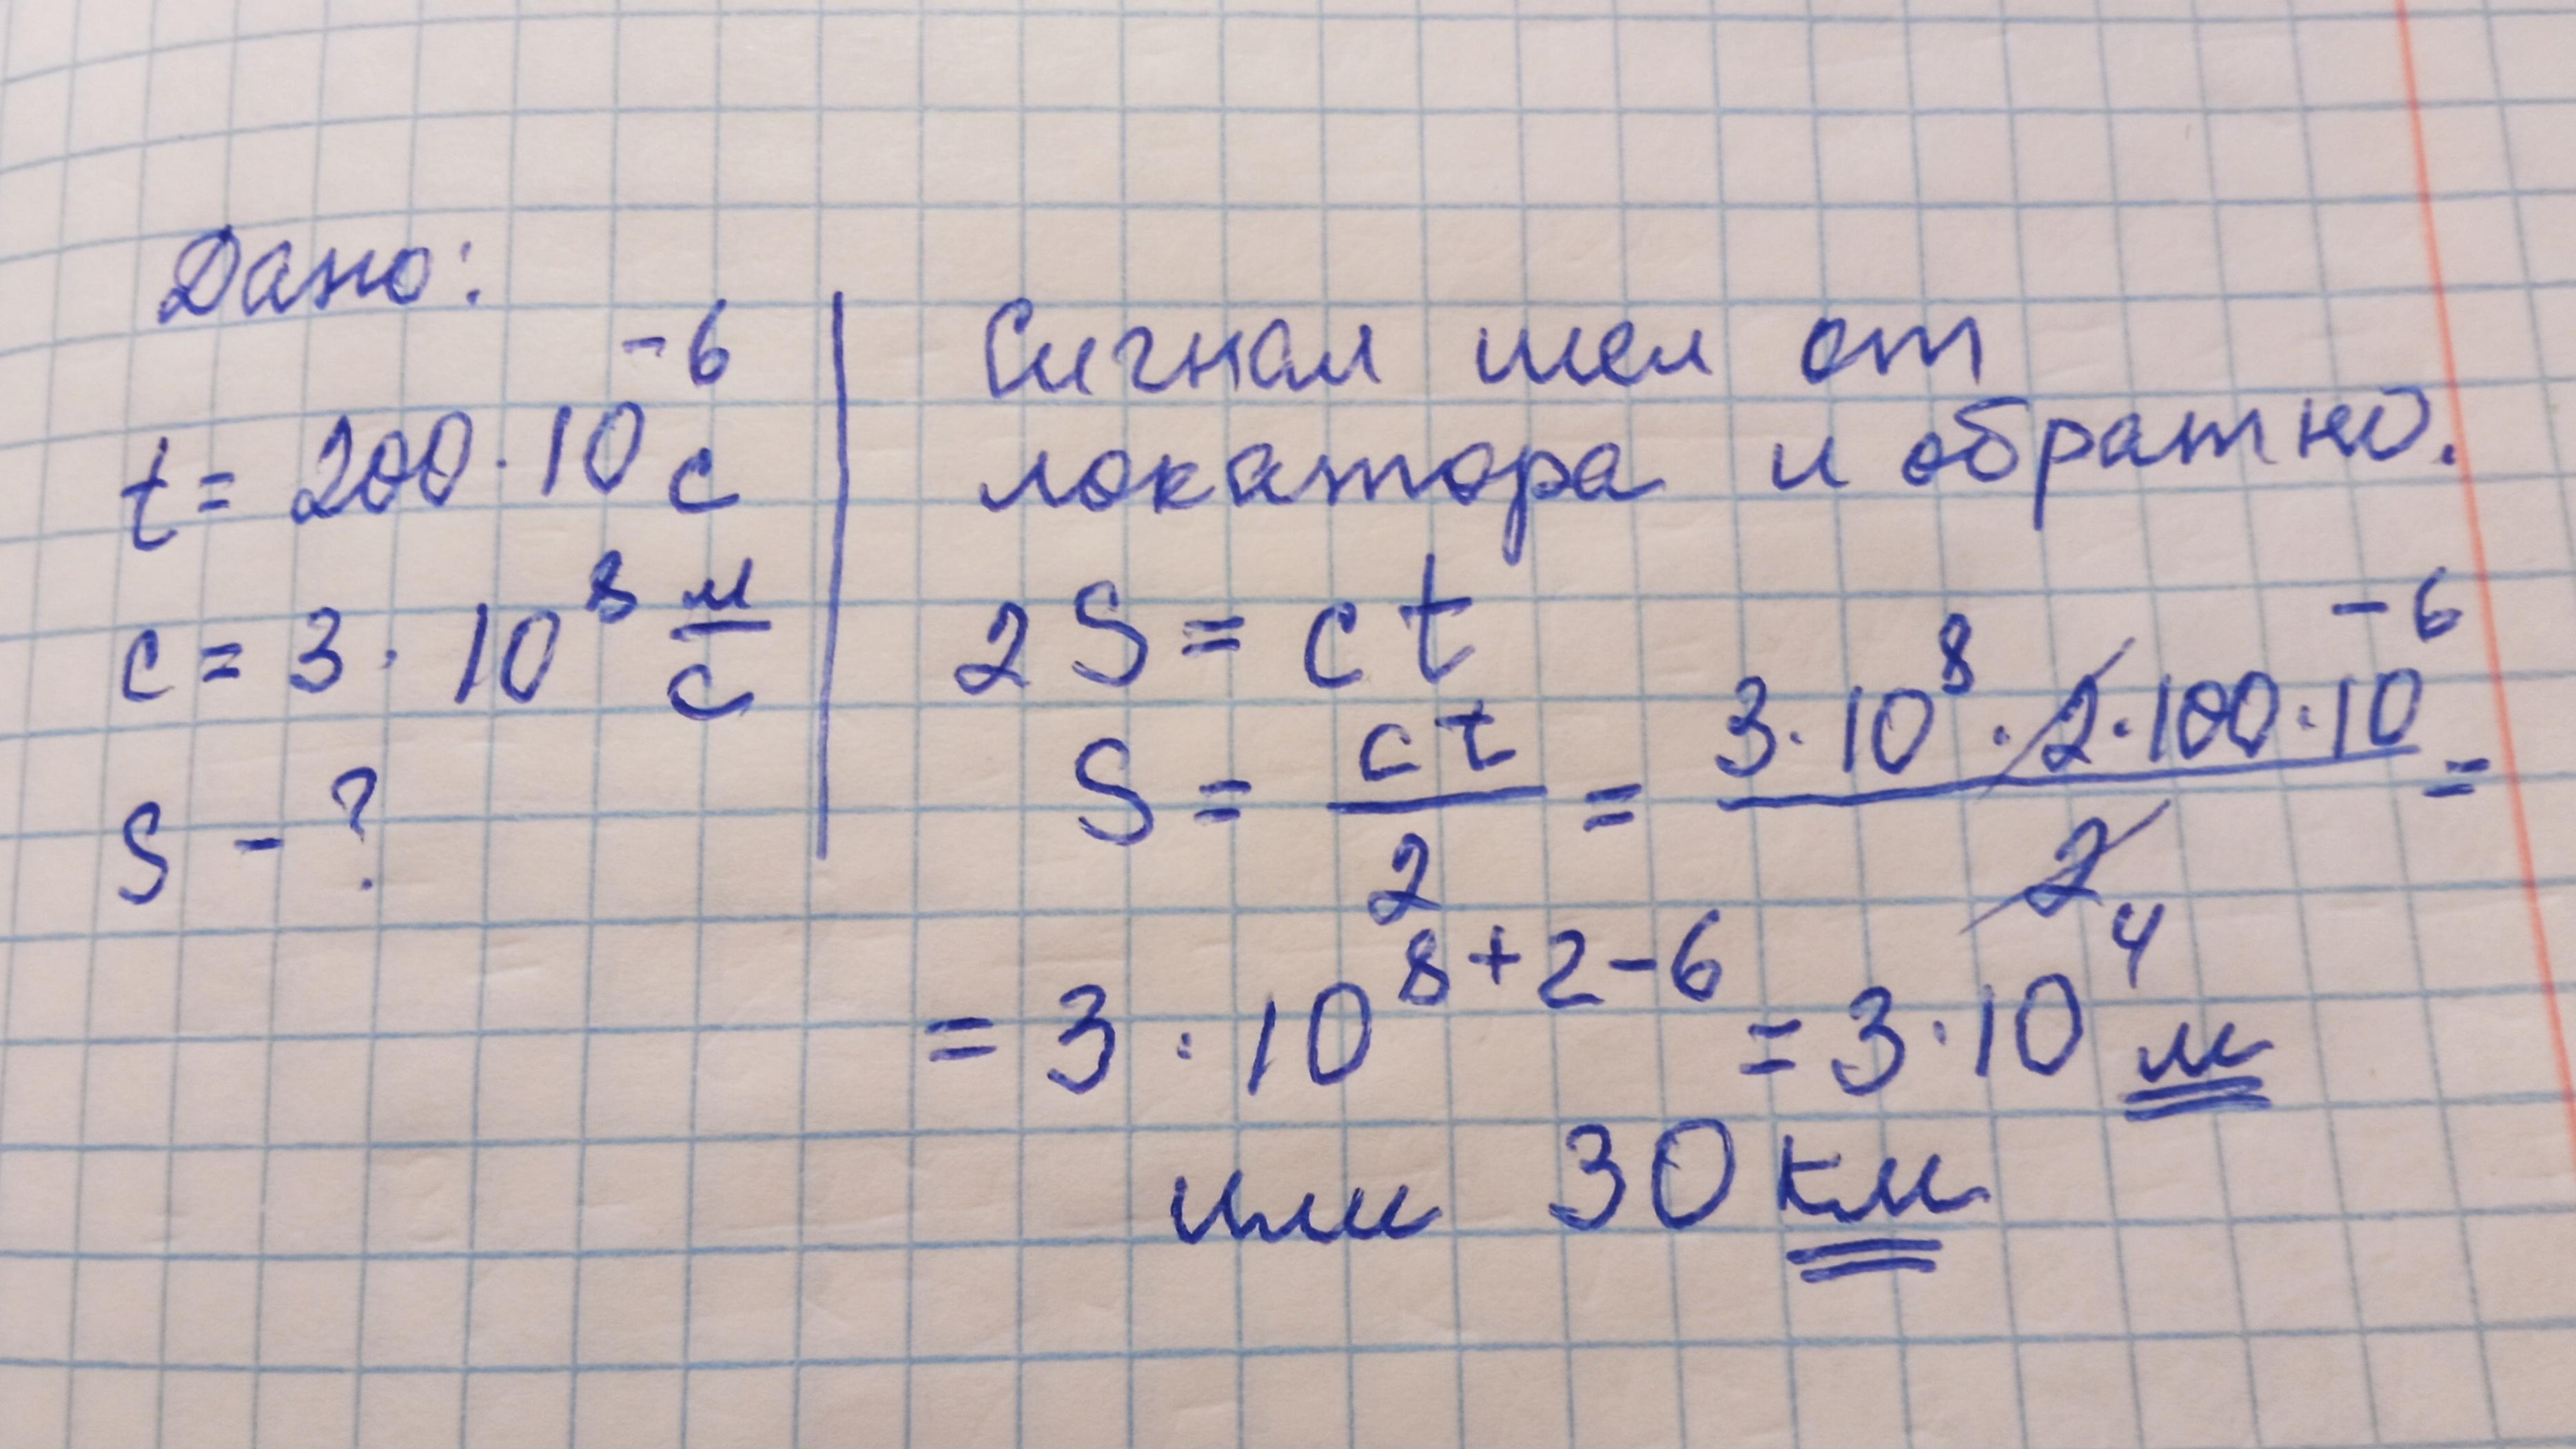 Дано:
t = 200 · 10⁻⁶ с
c = 3 · 10⁸ м/с
S - ?
Сигнал шел от
локатора и обратно.
2S = ct
S = ct/2 = 3 · 10⁸ · 2 · 100 · 10⁻⁶/2 =
= 3 · 10⁸⁺²⁻⁶ = 3 · 10⁴ м
или 30 км